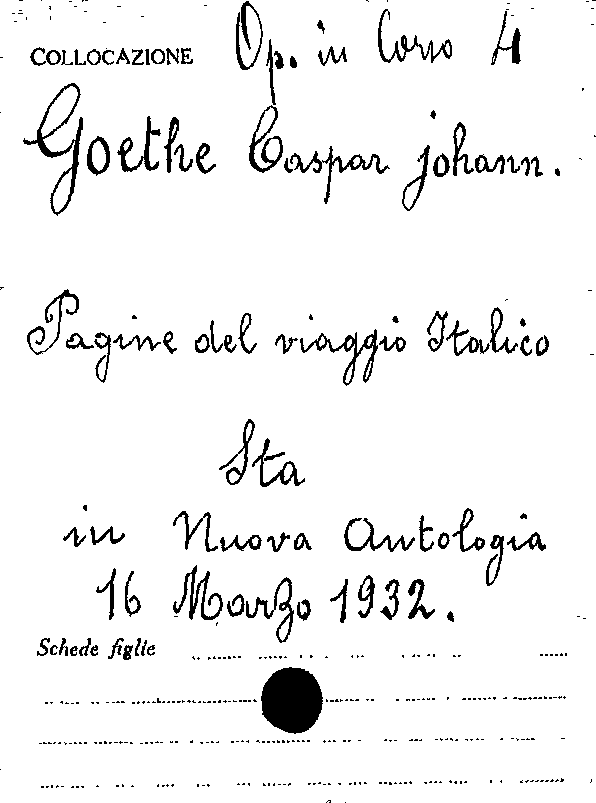 COLLOCAZIONE Op. in Corso 4
Goethe Caspar Johann.
Pagine del viaggio Italico
Sta
in Nuova Antologia
16 Marzo 1932.
Schede figlie